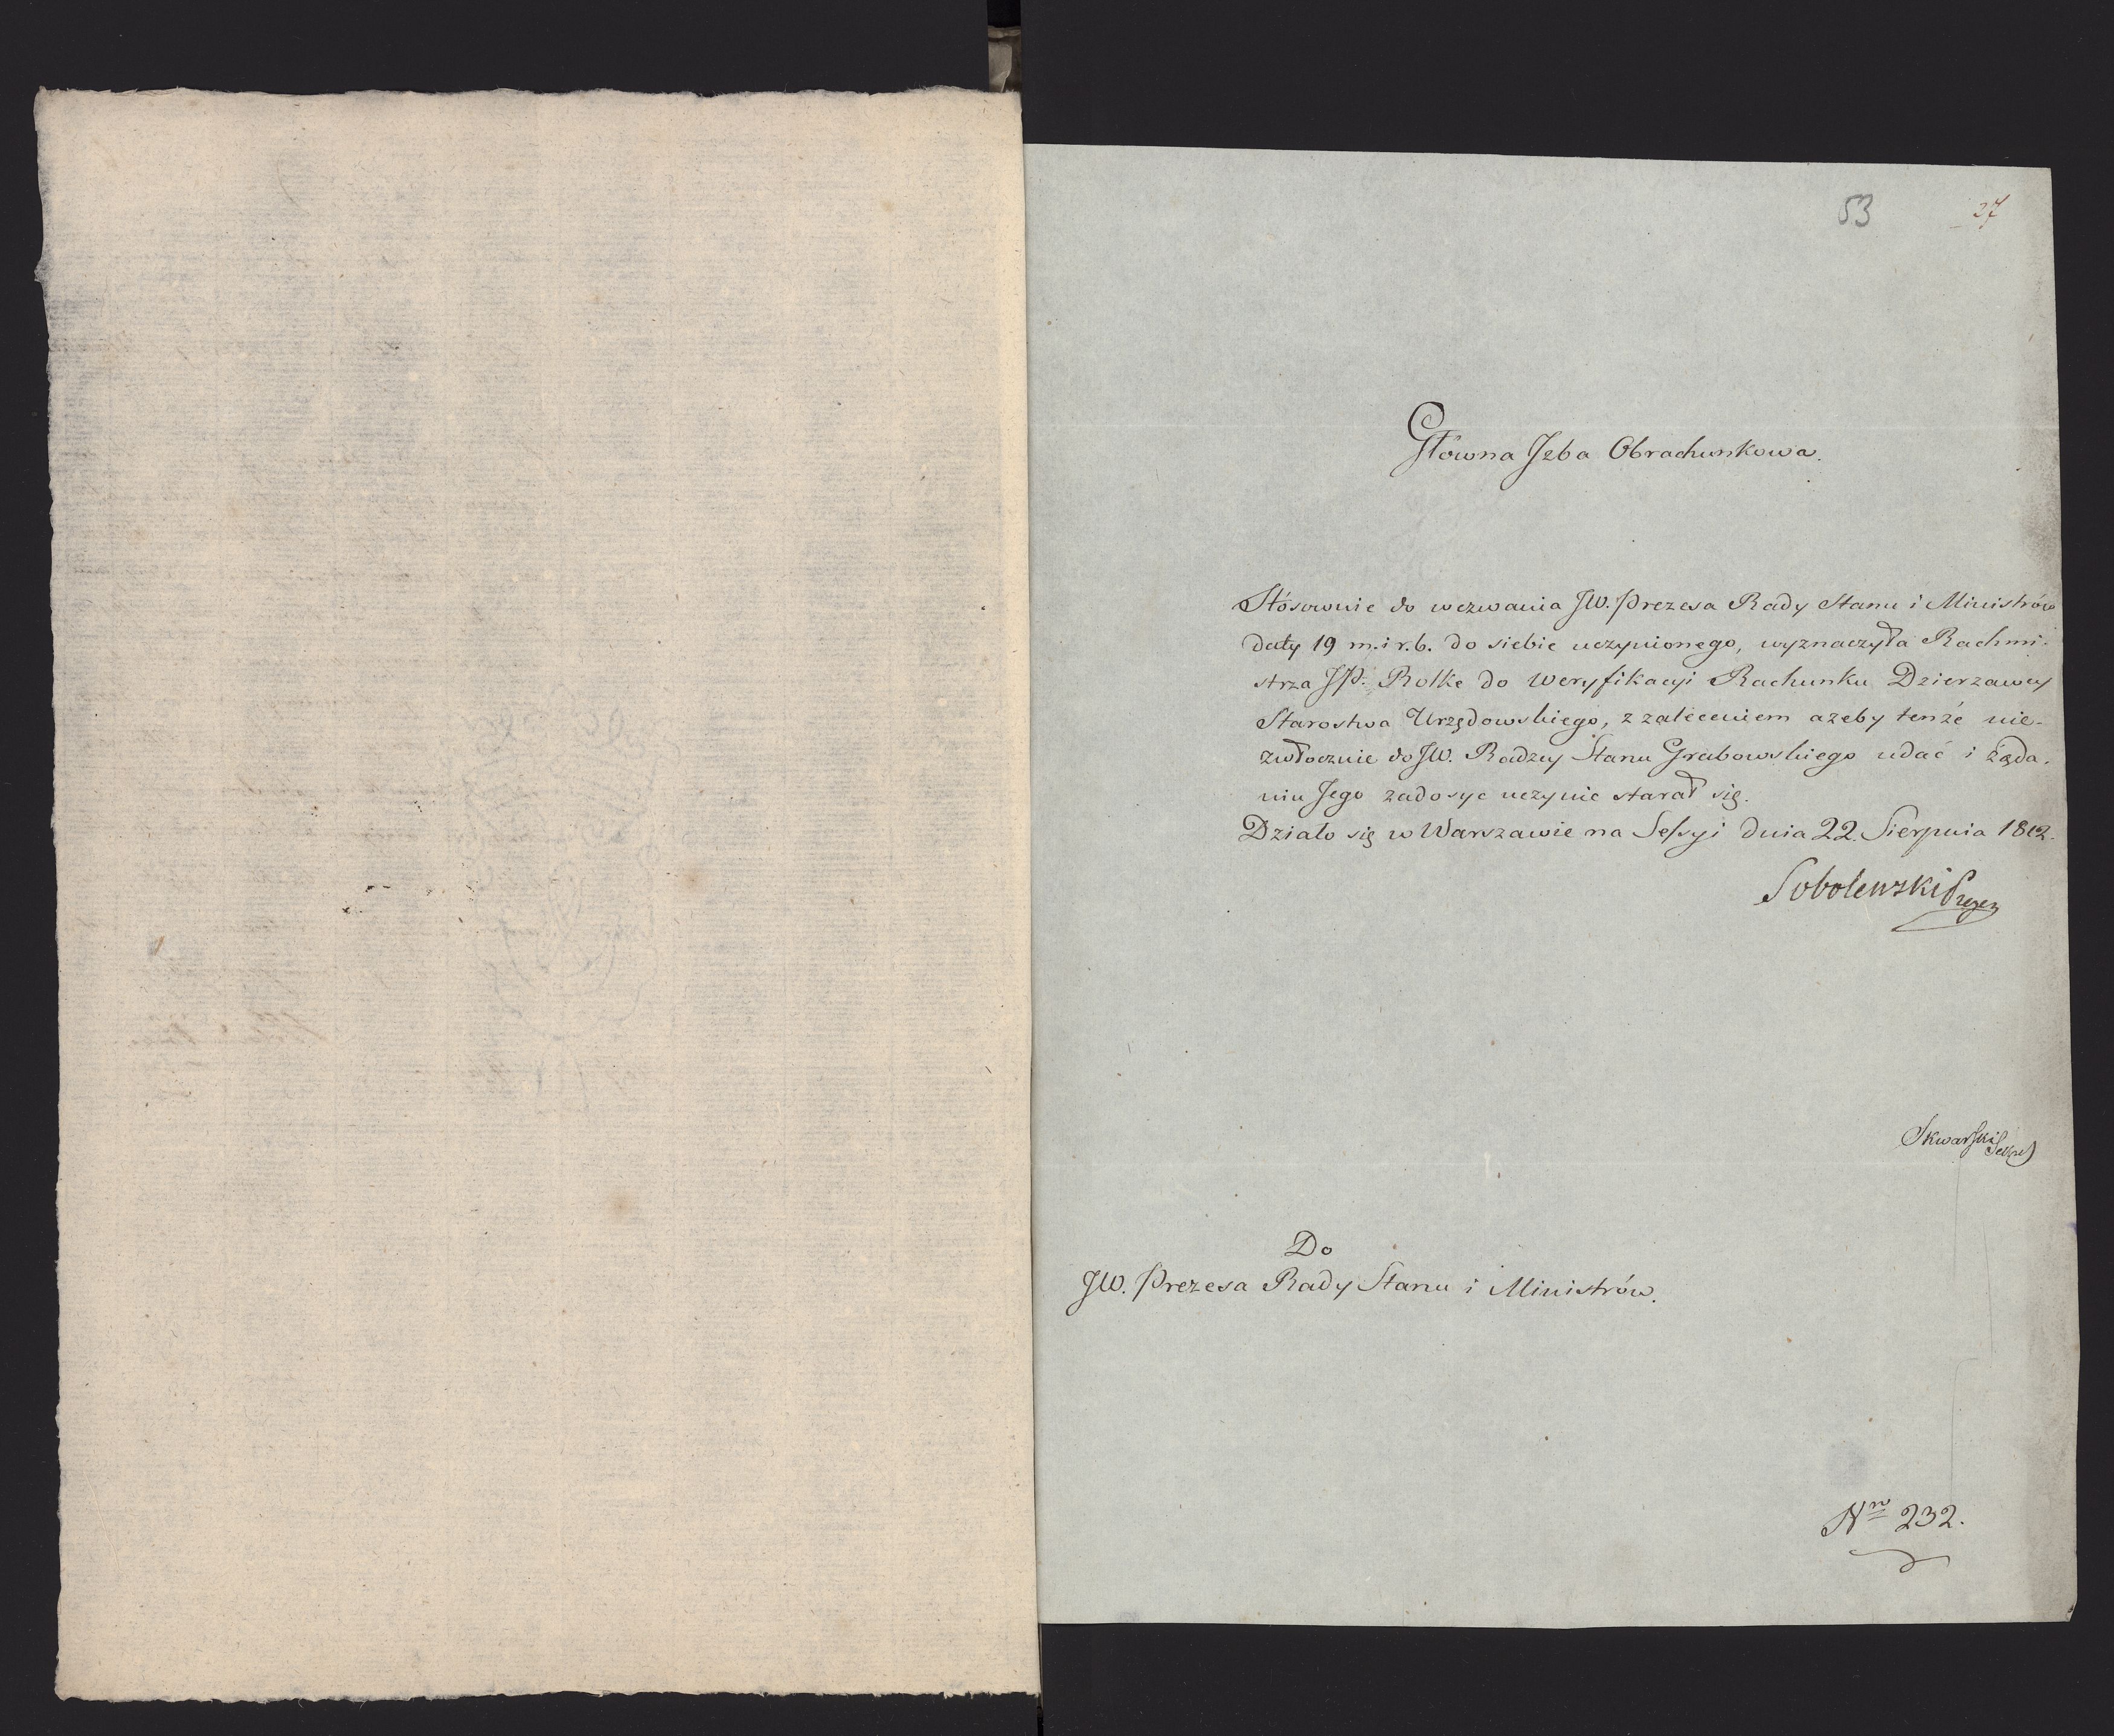 53 27
Główna Jzba Obrachunkowa.
Stósownie do wezwania JW. Prezesa Rady Stanu i Ministrów
daty 19 m. i r. b. do siebie uczynionego, wyznaczyła Rachmi-
strza JP. Rolke do weryfikacyi Rachunku Dzierzawcy
Starostwa Urzędowskiego, z zaleceniem azeby tenże nie-
zwłocznie do JW. Radzcy Stanu Grabowskiego udać i żąda-
niu Jego zadosyc uczynic starał się.
Działo się w Warszawie na Sessyi dnia 22. Sierpnia 1812.
Sobolewski Prezes
Skwarski Sekret
Do
JW. Prezesa Rady Stanu i Ministrów.
Nro 232.